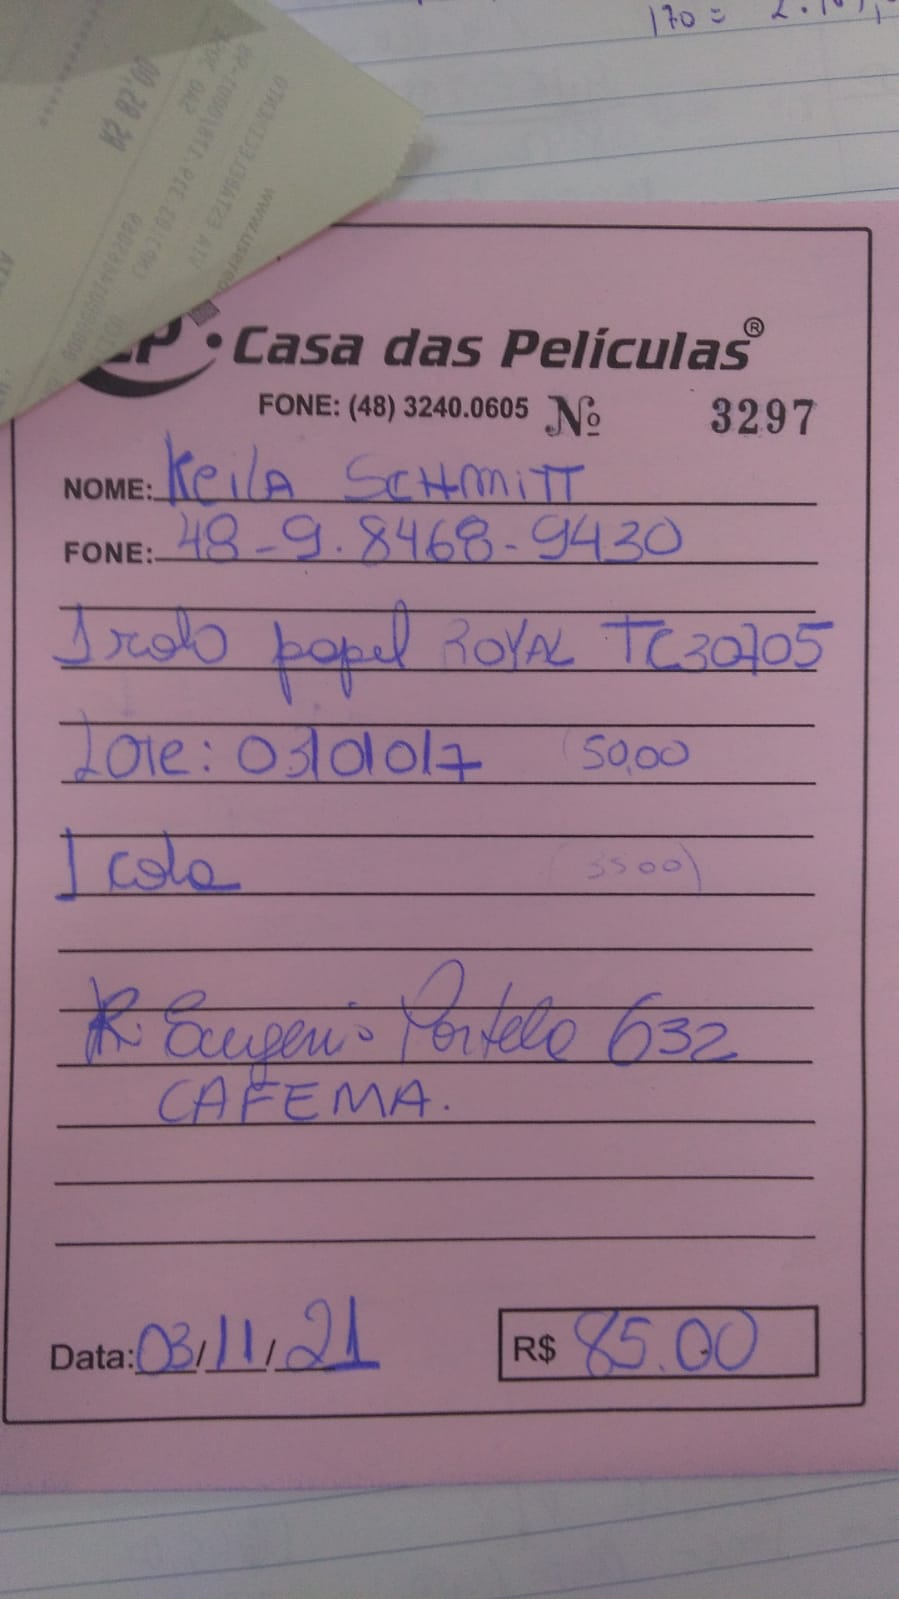 170 =
• Casa das Películas®
FONE: (48) 3240.0605 Nº 3297
NOME: Keila SCHMITT
FONE: 48-9.8468-9430
1 rolo papel ROYAL TC30705
Lote: 0310017 (50,00
1 cola (3500)
R. Eugenio Portela 632
CAFEMA.
Data: 03/11/21 R$ 85.00